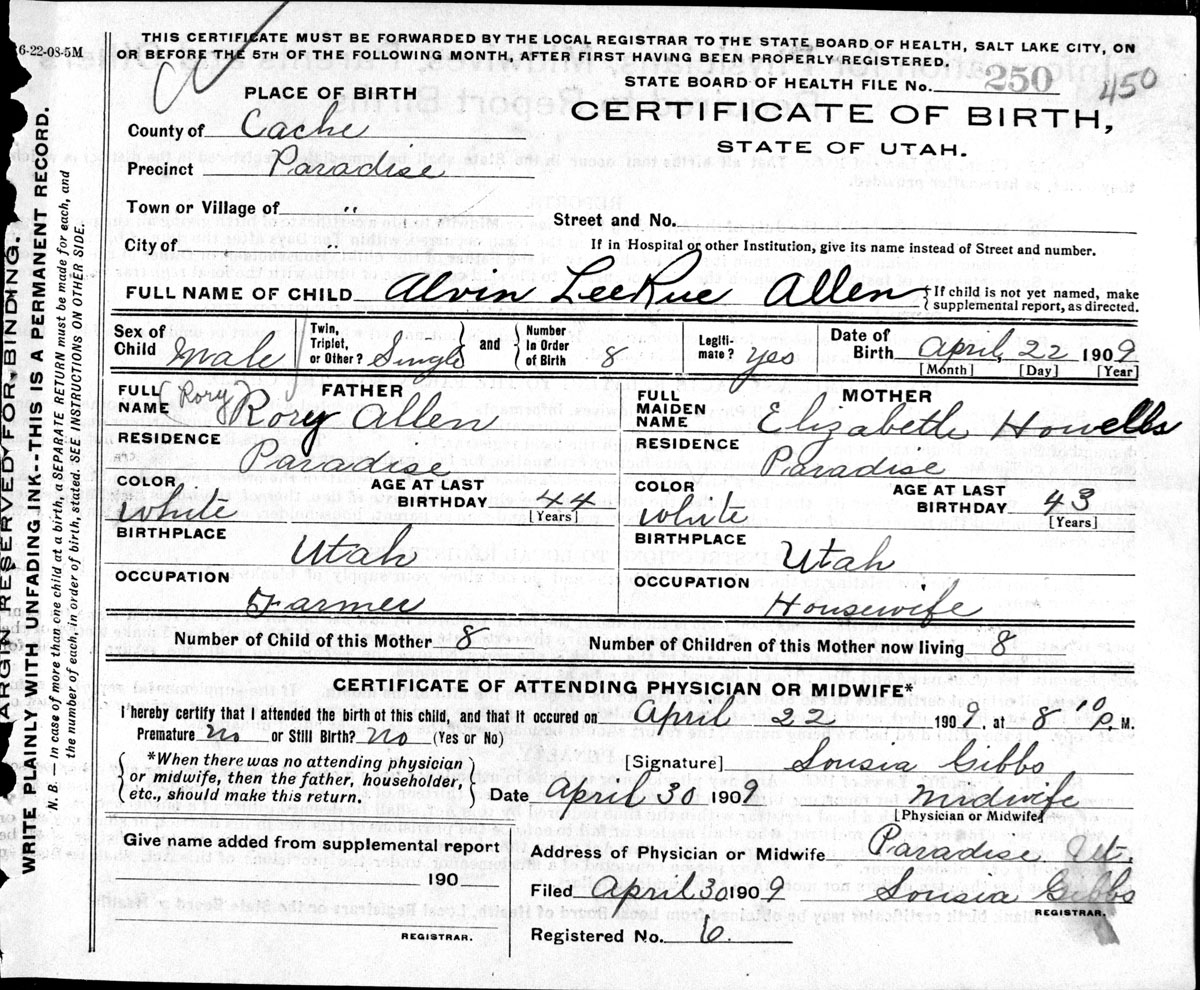 6-22-08-5M
THIS CERTIFICATE MUST BE FORWARDED BY THE LOCAL REGISTRAR TO THE STATE BOARD OF HEALTH, SALT LAKE CITY, ON
OR BEFORE THE 5TH OF THE FOLLOWING MONTH, AFTER FIRST HAVING BEEN PROPERLY REGISTERED.
STATE BOARD OF HEALTH FILE No. 250 450
PLACE OF BIRTH
CERTIFICATE OF BIRTH,
STATE OF UTAH.
County of Cache
Precinct Paradise
Town or Village of "
Street and No.
City of "
If in Hospital or other Institution, give its name instead of Street and number.
FULL NAME OF CHILD Alvin LeeRue Allen { If child is not yet named, make supplemental report, as directed.
Sex of Child Male Twin, Triplet, or Other? Single and Number In Order of Birth 8 Legiti- mate? Yes Date of Birth April 22 1909
[Month] [Day] [Year]
FATHER
FULL NAME (Rory) Rory Allen
RESIDENCE
Paradise
COLOR White AGE AT LAST BIRTHDAY 44
[Years]
BIRTHPLACE
Utah
OCCUPATION
Farmer
MOTHER
FULL MAIDEN NAME Elizabeth Howells
RESIDENCE
Paradise
COLOR White AGE AT LAST BIRTHDAY 43
[Years]
BIRTHPLACE
Utah
OCCUPATION
Housewife
Number of Child of this Mother 8 Number of Children of this Mother now living 8
CERTIFICATE OF ATTENDING PHYSICIAN OR MIDWIFE*
I hereby certify that I attended the birth of this child, and that it occured on April 22 1909 at 8'10 P. M.
Premature No or Still Birth? No (Yes or No)
*When there was no attending physician
or midwife, then the father, householder,
etc., should make this return.
[Signature] Lousia Gibbs
Date April 30 1909 Midwife
[Physician or Midwife]
Give name added from supplemental report
190
REGISTRAR.
Address of Physician or Midwife Paradise Ut.
Filed April 30 1909 Lousia Gibbs
REGISTRAR.
Registered No. 6.
MARGIN RESERVED FOR BINDING.
WRITE PLAINLY WITH UNFADING INK--THIS IS A PERMANENT RECORD.
N. B. — In case of more than one child at a birth, a SEPARATE RETURN must be made for each, and
the number of each, in order of birth, stated. SEE INSTRUCTIONS ON OTHER SIDE.